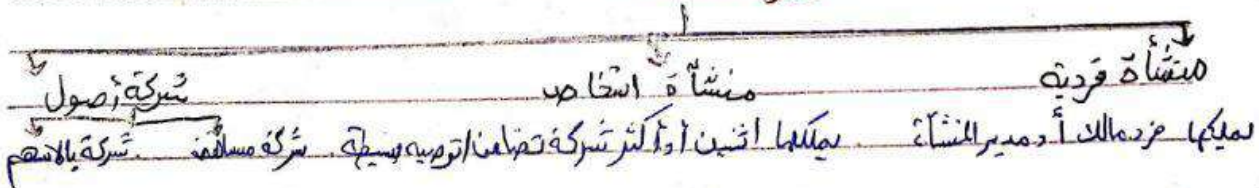 منشأة فردية منشأة اشخاص شركة أصول
يمليكها فرد مالك أد مدير المنشأة يملكها اثنين أو أكثر شركة تضامن / توصيه بسيطة شركة مساهمة شركة بالاسهم